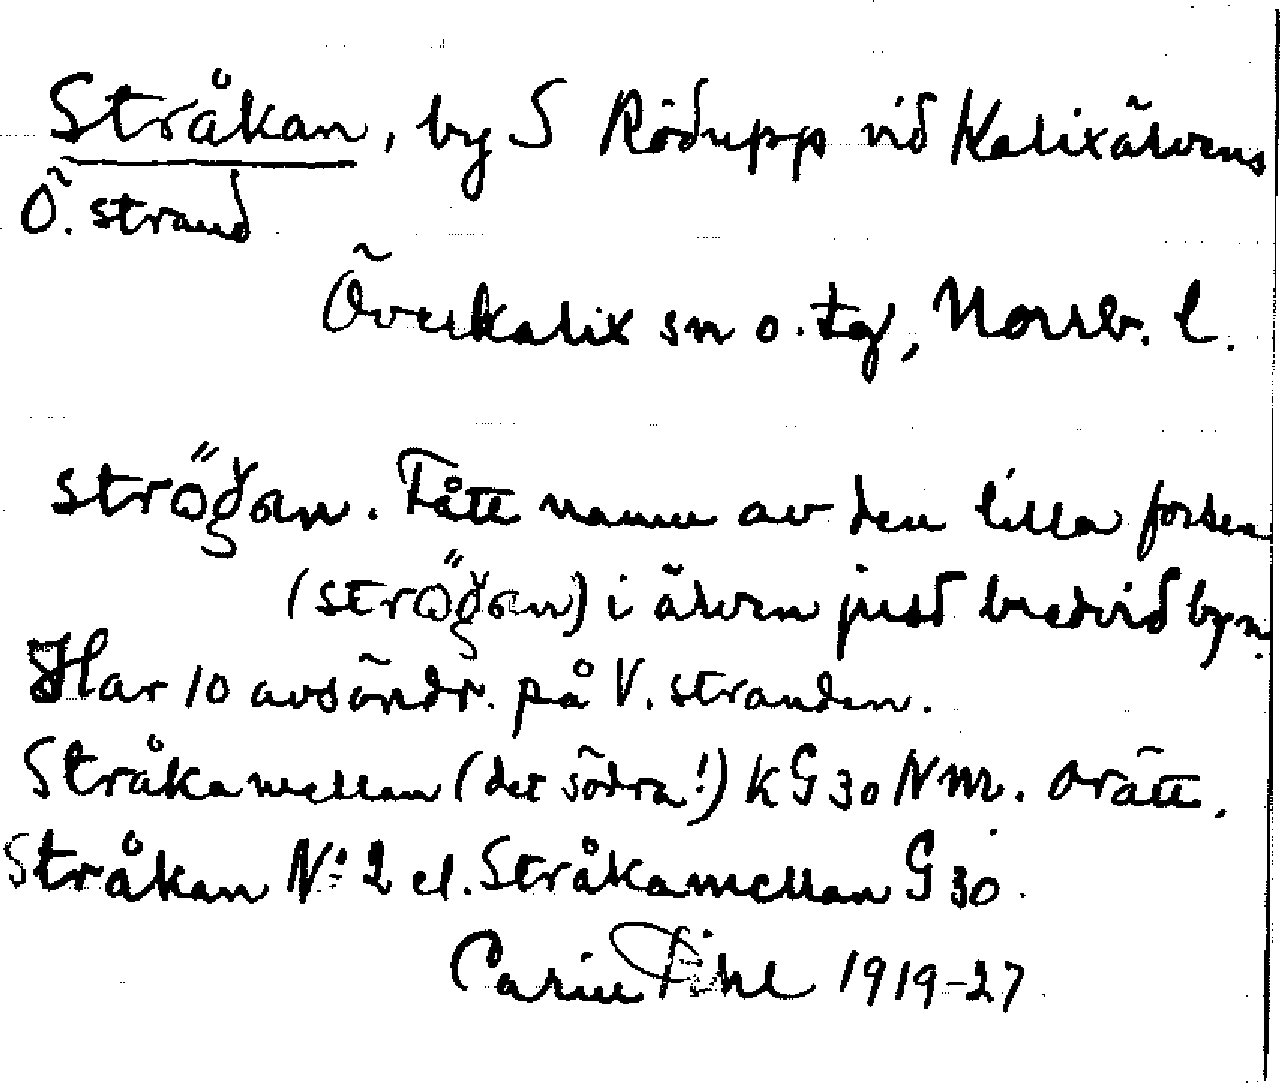 Stråkan, by S Rödupp vid Kalixälvens
Ö. strand
Överkalix sn o. tg, Norrb. l.
strö̋ğan. Fått namn av den lilla forsen
(strö̋ğan) i älven just bredvid byn.
Har 10 avsöndr. på V. stranden.
Stråkamellan (det södra!) KG 30 NM. orätt.
Stråkan N:2 el. Stråkamellan G 30.
Carin Pihl 1919-27